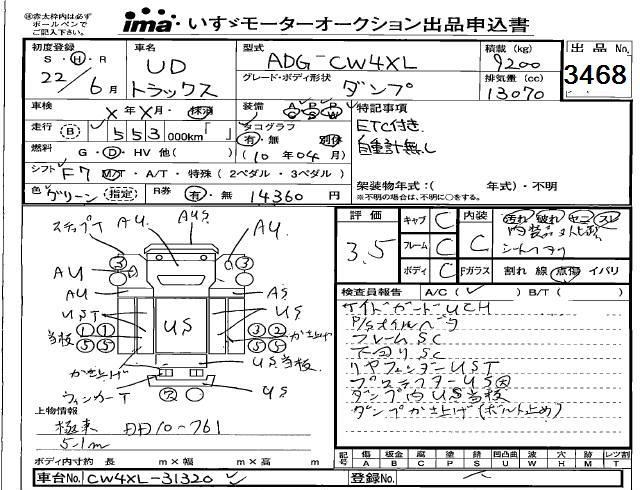 ㊟赤太枠内は必ず
ボールペンで
ご記入下さい。
ima いすゞモーターオークション出品申込書
初度登録
S・H・R
22/6月
車名
UD
トラックス
型式
ADG-CW4XL
グレード・ボディ形状
ダンプ
積載 (kg)
9200
排気量 (cc)
13070
出品 No.
3468
車検
X年X月・抹消
装備
A P P
C S W
特記事項
ETC付き
自重計無し
走行 (B) 553000km「 」
タコグラフ
有・無 別体
(10年04月)
燃料
G・D・HV 他( )
シフト
F7 M/T・A/T・特殊 (2ペダル・3ペダル)
色 グリーン (指定)
R券 有・無 14360円
架装物年式:( 年式)・不明
※不明の場合は、不明に○をする。
評価
3.5
キャブ C
フレーム C
ボディ C
内装 C
汚れ 破れ ヤニ スレ
Fガラス 割れ 線 点傷 イバリ
検査員報告 A/C( ✓ ) B/T( )
サイドガードUCH
フレームSC
下回りSC
リヤフェンダーUST
ダンプ内US当板
ダンプかさ上げ(ボルト止め)
ステップT
AU
AUS
AU
3
3
AU
AU
AS
UST
US
US
1 1
5 5
当板
3 2
5 5
かさ上げ
かさ上げ
US当板
ウィンカーT
US
上物情報
極東 DD10-761
5.1m
ボディ内寸約 長 m×幅 m×高 m
記号
傷 板金 腐 塗 色 錆 凹凸曲 波 穴 跡 レツ割
A B C P S U W H M T
車台No. CW4XL-31320
登録No.